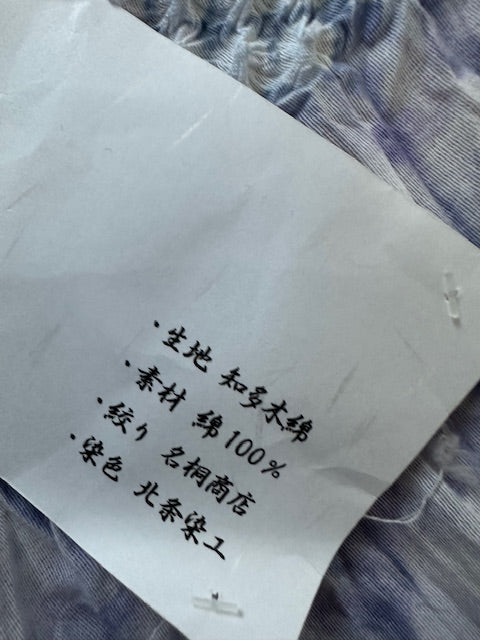 ・生地 知多木綿
・素材 綿100%
・絞り 名桐商店
・染色 北条染工